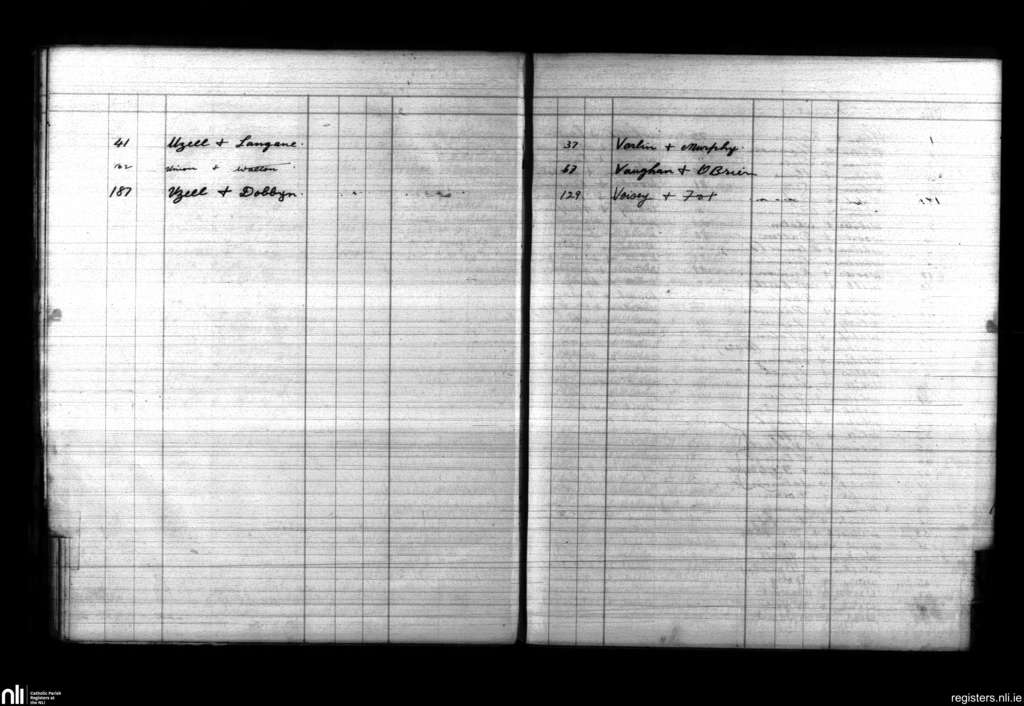 41 Uzell + Langane.
Union + Walton
187 Uzell + Dobbyn.
37 Varlin + Murphy.
67 Vaughan + O'Brien
129 Veisey + Fox
nli
Catholic Parish
Registers at
the NLI
registers.nli.ie